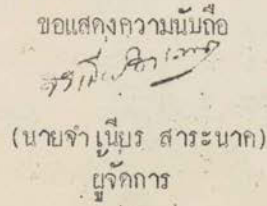 ขอแสดงความนับถือ
(นายจำเนียร สาระนาค)
ผู้จัดการ